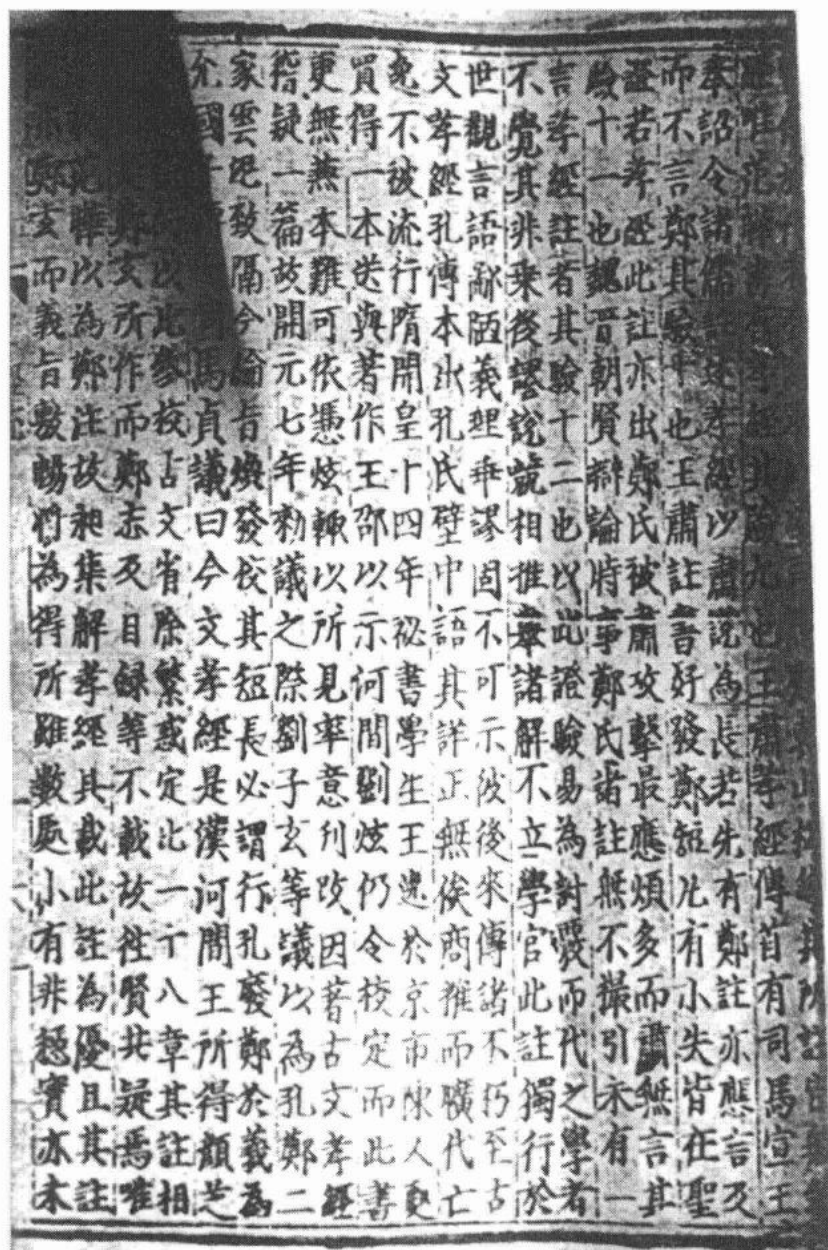 孝經其驗九也王肅孝經傳首有司馬宣王
奉詔令諸儒註述孝經以肅說為長若先有鄭註亦應言及
而不言鄭其驗十也王肅註書好發鄭短凡有小失皆在聖
證若孝經此註亦出鄭氏被肅攻擊最應煩多而肅無言其
驗十一也魏晉朝賢辯論時事鄭氏諸註無不撮引未有一
言孝經註者其驗十二也以此證驗易為討覈而代之學者
不覺其非乗後謬說競相推舉諸解不立學官此註獨行於
世觀言語鄙陋義理乖謬固不可示彼後來傳諸不朽至古
文孝經孔傳本出孔氏壁中語其詳正無俟商搉而曠代亡
逸不被流行隋開皇十四年祕書學生王逸於京市陳人處
買得一本送與著作王邵以示河間劉炫仍令校定而此書
更無兼本難可依憑炫輒以所見率意刋改因著古文孝經
稽疑一篇故開元七年勑議之際劉子玄等議以為孔鄭二
家雲泥致隔今綸旨煥發校其短長必謂行孔廢鄭於義為
允國子馬貞議曰今文孝經是漢河間王所得顏芝
以此參校古文省除繁惑定此一十八章其註相
鄭玄所作而鄭志及目録等不載故往賢共疑焉唯
范曄以為鄭注故昶集解孝經具載此註為優且其註
鄭玄而義旨敷暢將為得所雖數處小有非穏實亦未